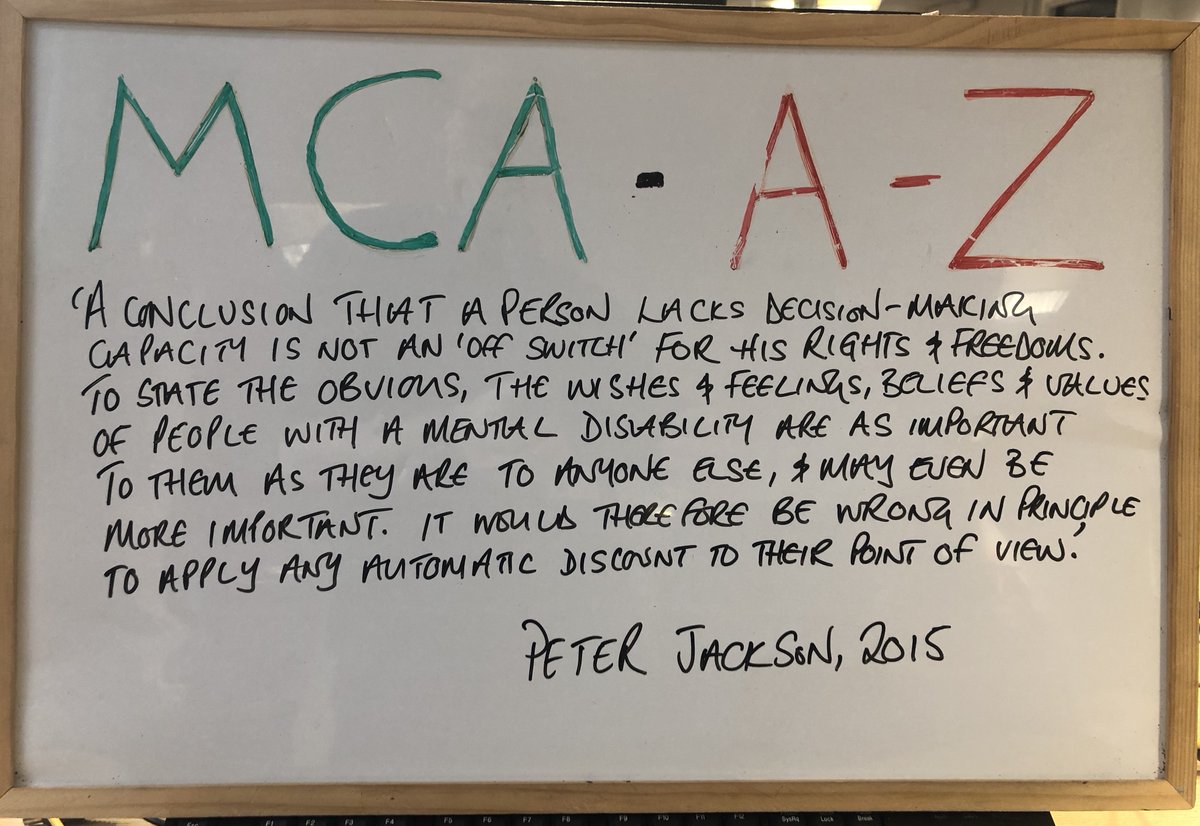 MCA - A-Z
'A CONCLUSION THAT A PERSON LACKS DECISION-MAKING
CAPACITY IS NOT AN 'OFF SWITCH' FOR HIS RIGHTS & FREEDOMS.
TO STATE THE OBVIOUS, THE WISHES & FEELINGS, BELIEFS & VALUES
OF PEOPLE WITH A MENTAL DISABILITY ARE AS IMPORTANT
TO THEM AS THEY ARE TO ANYONE ELSE, & MAY EVEN BE
MORE IMPORTANT. IT WOULD THEREFORE BE WRONG IN PRINCIPLE
TO APPLY ANY AUTOMATIC DISCOUNT TO THEIR POINT OF VIEW.'
PETER JACKSON, 2015
Esc F1 F2 F3 F4 F5 F6 F7 F8 F9 F10 F11 F12 SysRq Lock Break